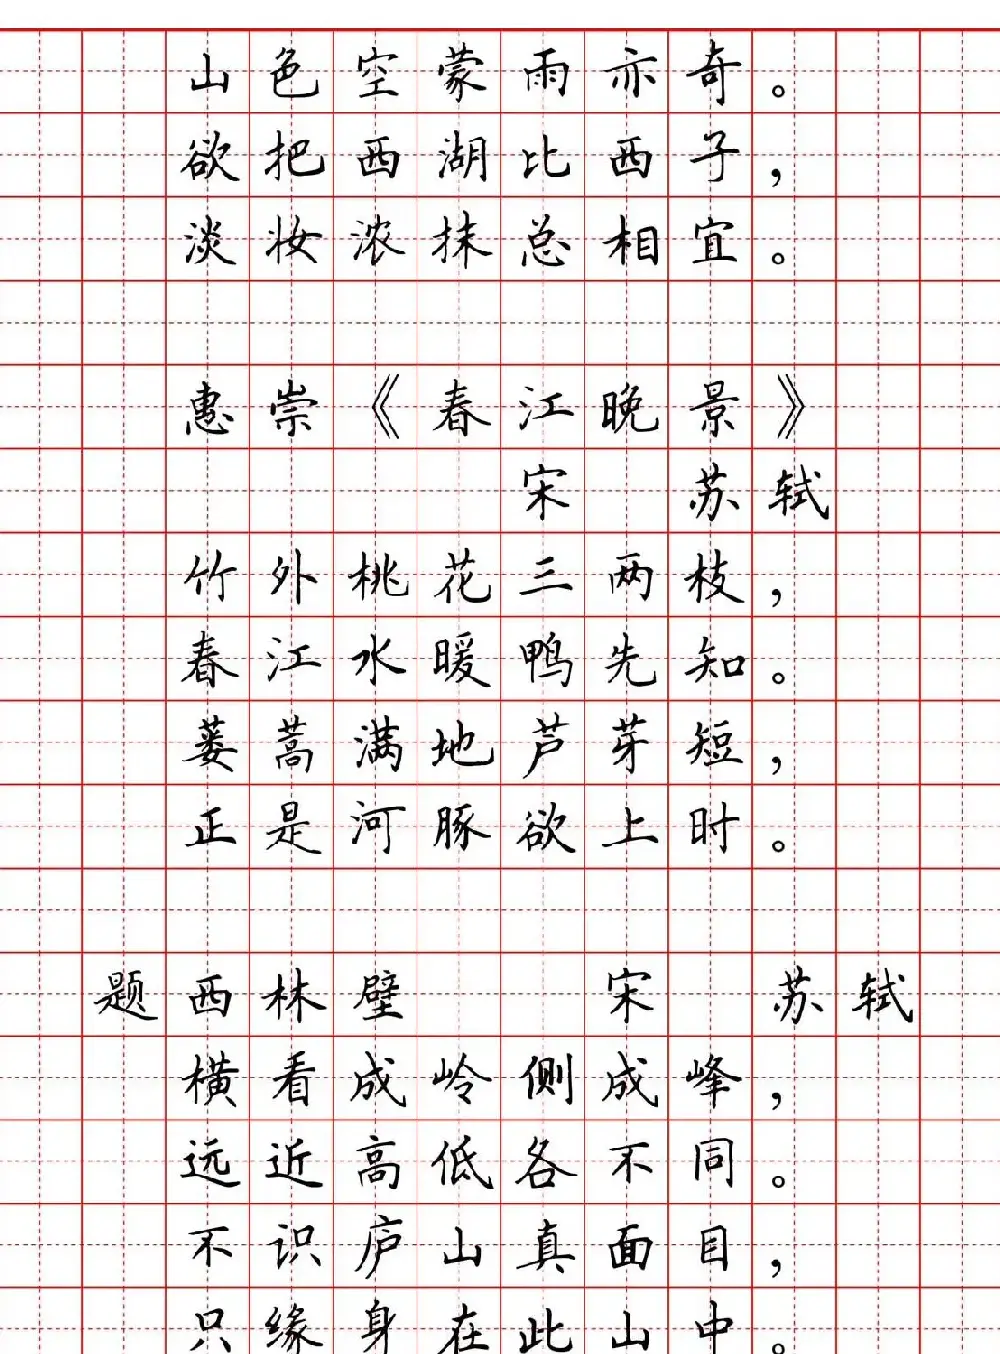 山色空蒙雨亦奇。
欲把西湖比西子，
淡妆浓抹总相宜。
惠崇《春江晚景》
宋 苏轼
竹外桃花三两枝，
春江水暖鸭先知。
蒌蒿满地芦芽短，
正是河豚欲上时。
题西林壁 宋 苏轼
横看成岭侧成峰，
远近高低各不同。
不识庐山真面目，
只缘身在此山中。